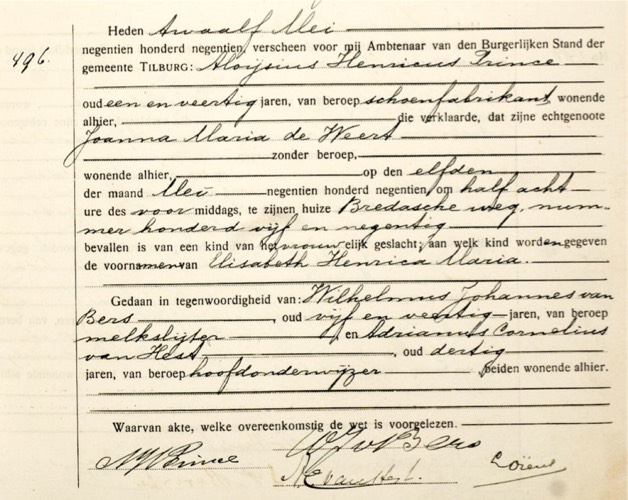 496.
Heden twaalf Mei
negentien honderd negentien, verscheen voor mij Ambtenaar van den Burgerlijken Stand der
gemeente TILBURG: Aloijsius Henricus Prince
oud een en veertig jaren, van beroep schoenfabrikant, wonende
alhier, die verklaarde, dat zijne echtgenoote
Joanna Maria de Weert
zonder beroep,
wonende alhier, op den elfden
der maand Mei negentien honderd negentien, om half acht
ure des voor middags, te zijnen huize Bredasche weg, num-
mer honderd vijf en negentig
bevallen is van een kind van het vrouwelijk geslacht, aan welk kind worden gegeven
de voornamen van Elisabeth Henrica Maria.
Gedaan in tegenwoordigheid van: Wilhelmus Johannes van
Bers, oud vijf en veertig jaren, van beroep
melkslijter, en Adrianus Cornelius
van Hest, oud dertig
jaren, van beroep hoofdonderwijzer, beiden wonende alhier.
Waarvan akte, welke overeenkomstig de wet is voorgelezen.
Prince v Bers
vanHest.